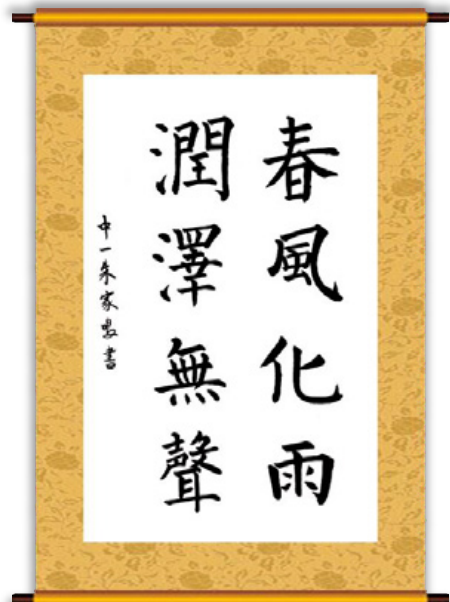 春風化雨
潤澤無聲
中一朱家書